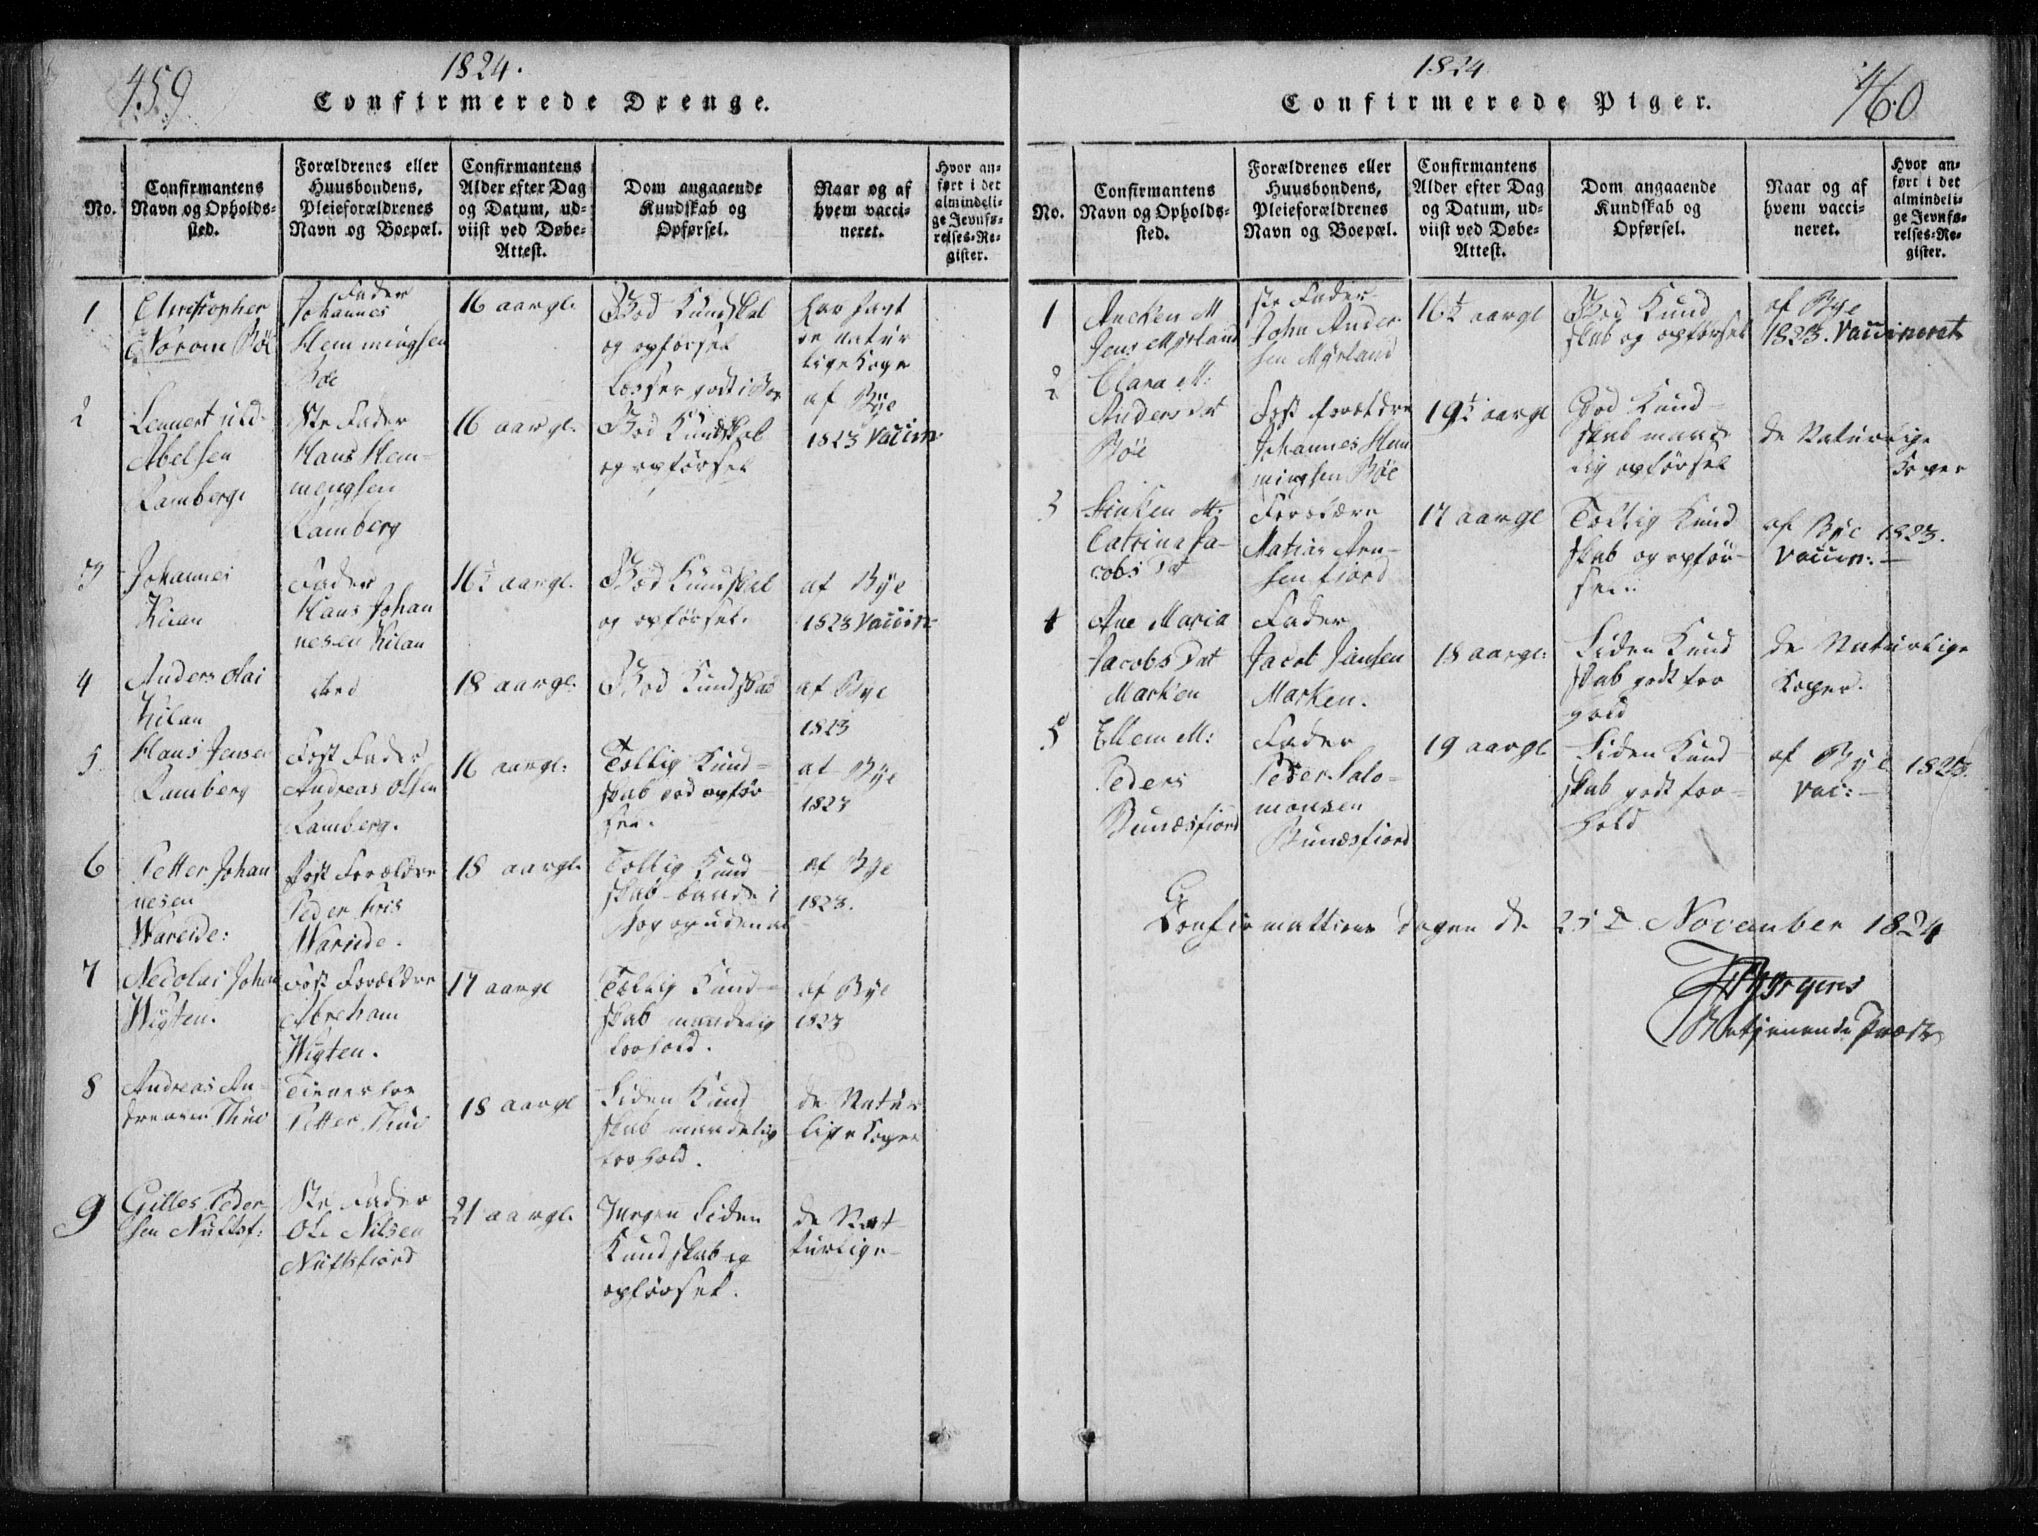 459
1824.
Confirmerede Drenge.
No.
Confirmantens
Navn og Opholds-
sted.
Forældrenes eller
Huusbondens,
Pleieforældrenes
Navn og Boepæl.
Confirmantens
Alder efter Dag
og Datum, ud-
viist ved Døbe-
Attest.
Dom angaaende
Kundskab og
Opførsel.
Naar og af
hvem vacci-
neret.
Hvor an-
ført i det
almindeli-
ge Jevnfø-
relses-Re-
gister.
1
Christopher
Norom Bøe
Fader
Johannes
Hemmingsen
Bøe
16 aargl.
God Kundskab
og opførsel
Læsser godt i Bog
har havt
de natur
lige Koper
2
Lennert
Abelsen
Ramberg
Ste Fader
Hans Hem-
mengsen
Ramberg
16 aargl.
God Kundskab
og opførsel
af Bye
1823 Vaccin
3
Johannes
Kilan
Fader
Hans Johan
nesen Kilan
16½ aargl.
God Kundskab
og opførsel.
af Bye
1823 Vaccin
4
Anders Olai
Kilan
18 aargl.
God Kundskab
af Bye
1823
5
Hans Jensen
Ramberg
Fost Fader
Andreas Olsen
Ramberg.
16 aargl:
Taalig Kund-
skab god opfør
sel.
af Bye
1823
6
Petter Johan
nesen
Wareide:
Fost Forældre
Peder
Wareide.
18 aargl.
Taalig Kund
skab baade i
Bog og udenad
af Bye
1823.
7
Necolai Johan
Wigten.
Fost Forældre
Abreham
Wigten.
17 aargl
Taalig Kund-
skab maadelig
forhold.
af Bye
1823
8
Andreas An-
Thue
Tiener hos
Petter Thue
18 aargl
Liden Kund
skab maadelig
forhold.
de Natur
lige Koper
9
Gilles Peder
sen Nultsf:
Ste Fader
Ole Nilsen
Nultsfiord
21 aargl.
Meget Liden
Kundskab og
opførsel.
de Nat-
turlige
460
1824
Confirmerede Piger.
No.
Confirmantens
Navn og Opholds-
sted.
Forældrenes eller
Huusbondens,
Pleieforældrenes
Navn og Boepæl.
Confirmantens
Alder efter Dag
og Datum, ud-
viist ved Døbe-
Attest.
Dom angaaende
Kundskab og
Opførsel.
Naar og af
hvem vacci-
neret.
Hvor an-
ført i det
almindeli-
ge Jevnfø-
relses-Re-
gister.
1
Aneken M
Jens Myrland
Ste Fader
John Ander
sen Myrland
16½ aargl
God Kund
skab og opførsel
af Bye
1823. Vaccineret
2
Clara M:
Anders Dat
Bøe
Fost forældre
Johannes Hem
mingsen Bøe
19½ aargl
God Kund-
skab maade
lig opførsel
de Naturlige
Koper
3
M:
Catrina Ja-
cobs Dat
Forældre
Matias Aren-
sen fiord
17 aargl
Taalig Kund
skab og opfør-
sel.
af Bye 1823.
Vaccin:
4
Ane Maria
Jacobs Dat
Marken
Fader
Jacob Jansen
Marken.
18 aargl:
Liden Kund
skab godt for
hold
de Naturlige
Koper.
5
Ellen M:
Peders
Bunæsfiord
Fader
Peder Salo-
monsen
Bunæsfiord
19 aargl
Liden Kund
skab godt for-
hold
af Bye 1823.
Vac:
Confirmattions dagen d. 25 de November 1824
Betienende Præst